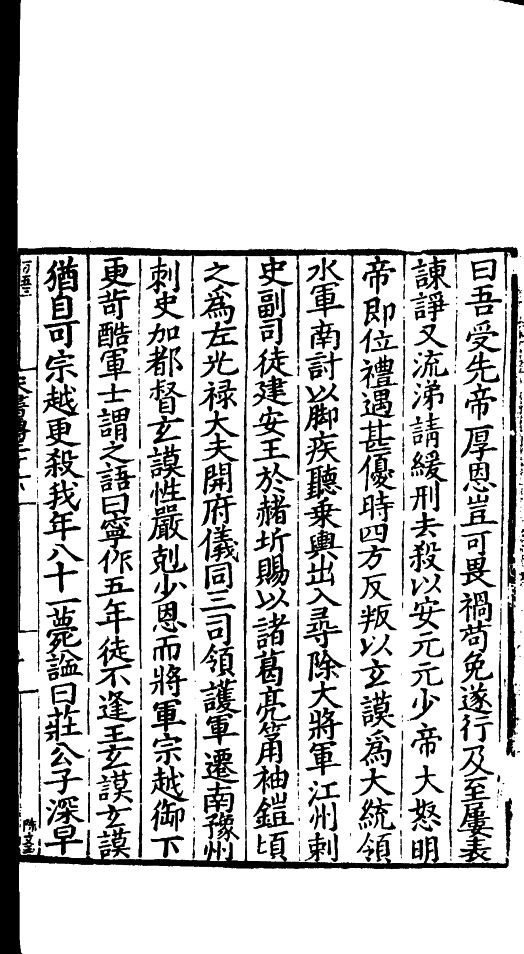 曰吾受先帝厚恩豈可畏禍苟免遂行及至屢表
諫諍又流涕請緩刑去殺以安元元少帝大怒明
帝即位禮遇甚優時四方反叛以玄謨爲大統領
水軍南討以脚疾聽乗輿出入尋除大將軍江州刺
史副司徒建安王於赭圻賜以諸葛亮筩袖鎧頃
之爲左光禄大夫開府儀同三司領護軍遷南豫州
刺史加都督玄謨性嚴剋少恩而將軍宗越御下
更苛酷軍士謂之語曰寧作五年徒不逢王玄謨玄謨
猶自可宗越更殺我年八十一薨謚曰莊公子深早